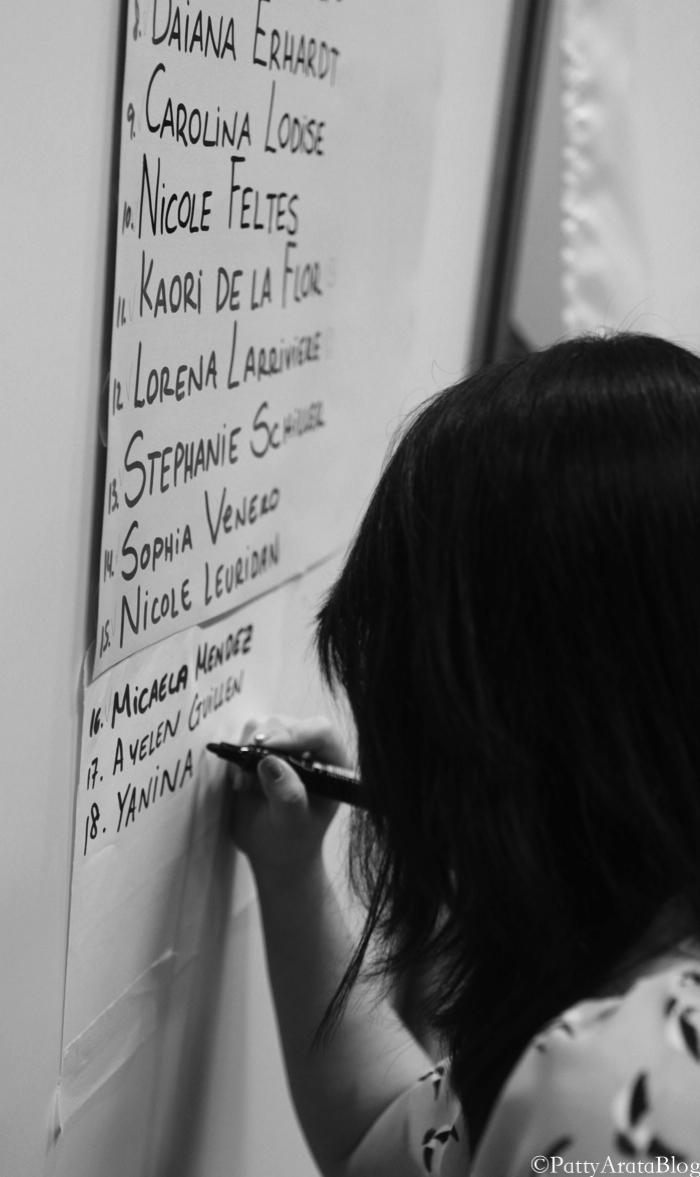 8. DAIANA ERHARDT
9. CAROLINA LODISE
10. NICOLE FELTES
11. KAORI DE LA FLOR
12. LORENA LARRIVIERE
13. STEPHANIE SCHILLER
14. SOPHIA VENERO
15. NICOLE LEURIDAN
16. MICAELA MENDEZ
17. AYELEN GUILLEN
18. YANINA
©PattyArataBlog